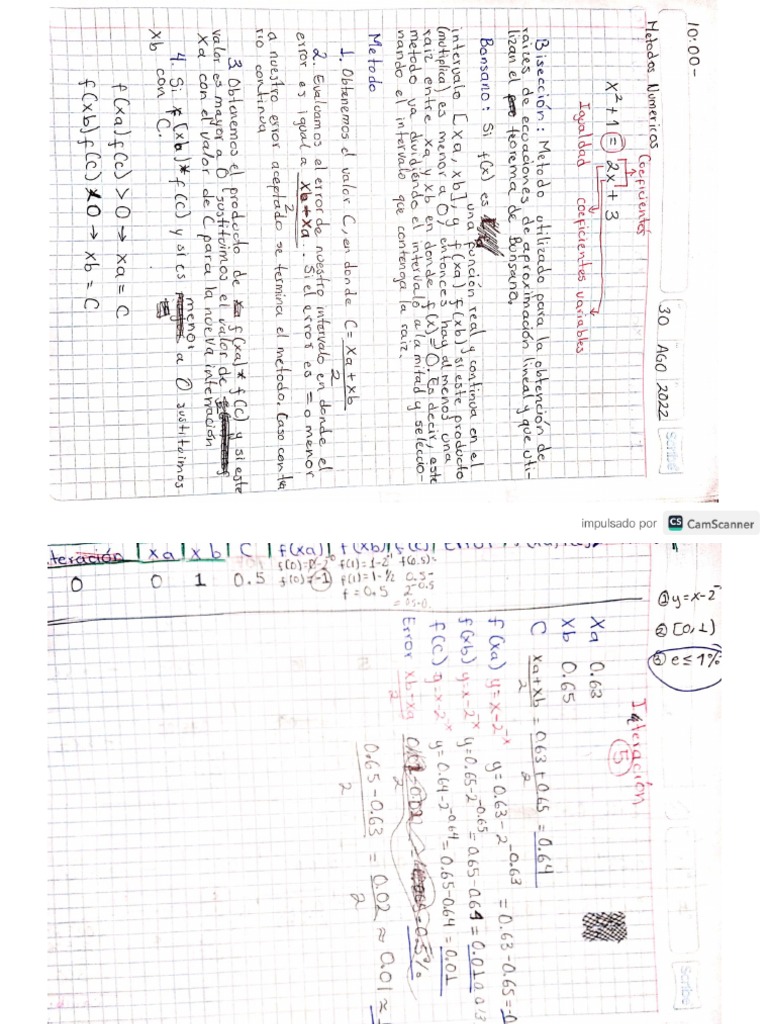 10:00-
30 AGO 2022
Scribe
Metodos Numericos
Coeficientes
x² + 1 = 2x + 3
Igualdad coeficientes variables
Bisección: Metodo utilizado para la obtención de
raizes de ecuaciones de aproximación lineal y que uti-
lizan el teorema de Bonsano.
Bonsano: Si f(x) es una función real y continua en el
intervalo [xa, xb], y f(xa) f(xb) si este producto
(multiplica) es menor a 0, entonces hay al menos una
raiz entre xa y xb en donde f(x)=0. Es decir, este
metodo va dividiendo el intervalo a la mitad y seleccio-
nando el intervalo que contenga la raiz.
Metodo
1. Obtenemos el valor C, en donde C = xa + xb
2
2. Evaluamos el error de nuestro intervalo en donde el
error es igual a xb + xa. Si el error es = o menor
2
a nuestro error aceptado se termina el metodo. Caso contra
rio continua
3. Obtenemos el producto de f(xa) * f(c) y si este
valor es mayor a 0 sustituimos el valor de
xa con el valor de C para la nueva interación
4. Si f(xb) * f(c) y si es menor a 0 sustituimos
xb con C.
f(xa) f(c) > 0 → xa = C
f(xb) f(c) < 0 → xb = C
impulsado por CS CamScanner
teración | xa | x b | C | f(xa) | f(xb) | f(c) | Error
f(1)=1-2⁻¹ f(0.5)=
0 0 1 0.5 f(0)=-1 f(1)=1-½ 0.5-
f=0.5 2^-0.5
① y=x-2⁻
② [0,1)
③ e≤1%
Interación
5
Xa 0.63
Xb 0.65
C xa+xb = 0.63+0.65 = 0.64
2 2
f(xa) y=x-2^-x y=0.63-2^-0.63 = 0.63-0.65=-0
f(xb) y=x-2^-x y=0.65-2^-0.65 = 0.65-0.64=0.01
f(c) y=x-2^-x y=0.64-2^-0.64 = 0.65-0.64=0.01
Error xb-xa
2
0.65-0.63 = 0.02 ≈ 0.01 ≈
2 2
Scribe